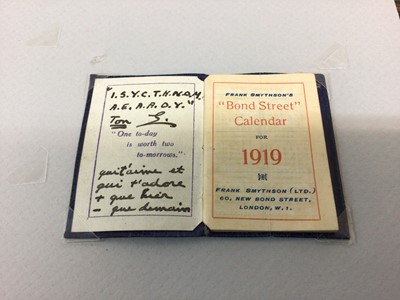 "I.S.Y.C.T.H.N.D.M.
A.E. A.A.O.Y."
Ton
"One to-day
is worth two
to-morrows."
qui t'aime et
qui t'adore
+ que hier
- que demain
FRANK SMYTHSON'S
"Bond Street"
Calendar
FOR
1919
FRANK SMYTHSON (LTD.)
60, NEW BOND STREET,
LONDON, W.1.